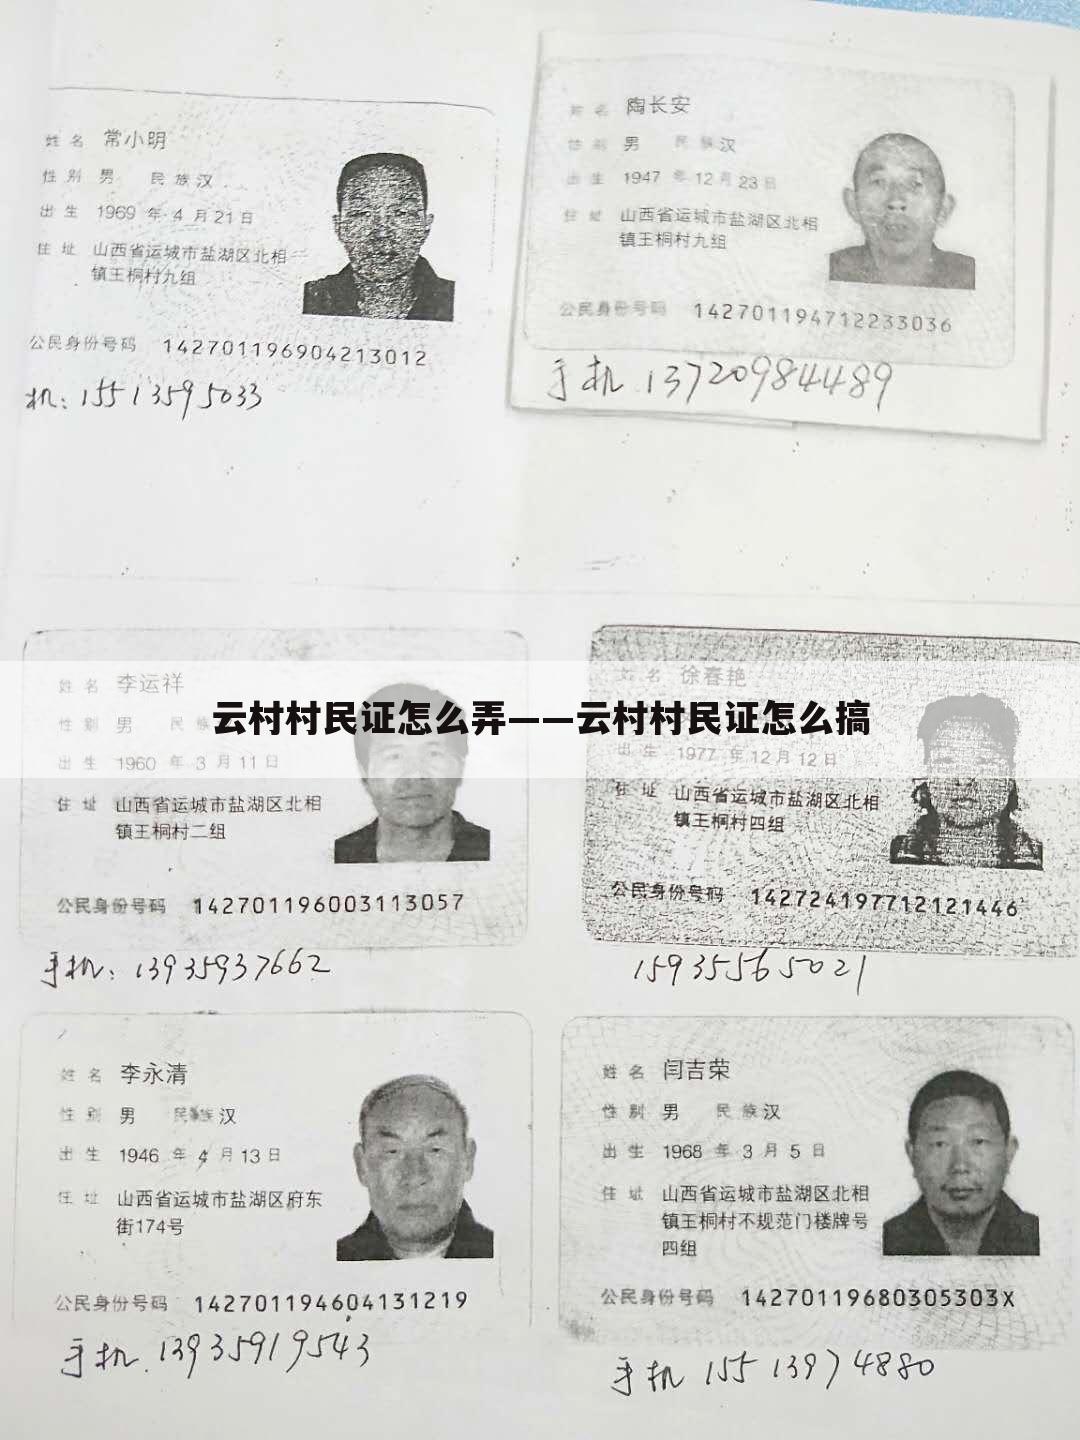 姓名 常小明
性别 男 民族 汉
出生 1969 年 4 月 21 日
住址 山西省运城市盐湖区北相
镇王桐村九组
公民身份号码 142701196904213012
机: 15513595033
姓名 陶长安
性别 男 民族 汉
出生 1947 年 12 月 23 日
住址 山西省运城市盐湖区北相
镇王桐村九组
公民身份号码 142701194712233036
手机 13720984489
云村村民证怎么弄——云村村民证怎么搞
姓名 李运祥
性别 男 民族
出生 1960 年 3 月 11 日
住址 山西省运城市盐湖区北相
镇王桐村二组
公民身份号码 142701196003113057
手机: 13935937662
姓名 徐春艳
出生 1977 年 12 月 12 日
住址 山西省运城市盐湖区北相
镇王桐村四组
公民身份号码 142724197712121446
15935565021
姓名 李永清
性别 男 民族 汉
出生 1946 年 4 月 13 日
住址 山西省运城市盐湖区府东
街174号
公民身份号码 142701194604131219
手机. 13935919543
姓名 闫吉荣
性别 男 民族 汉
出生 1968 年 3 月 5 日
住址 山西省运城市盐湖区北相
镇王桐村不规范门楼牌号
四组
公民身份号码 14270119680305303X
手机 15513974880